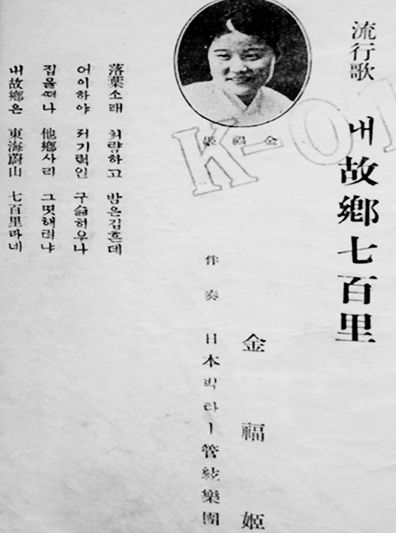 流行歌
내故鄕七百里
金福姬
金福姬
伴奏 日本빅타ー管絃樂團
落葉소래 처량하고 밤은깁흔데
어이하야 저기럭인 구슲허우나
집을떠나 他鄕사리 그몃해리냐
내故鄕은 東海蔚山 七百里라네
K-O